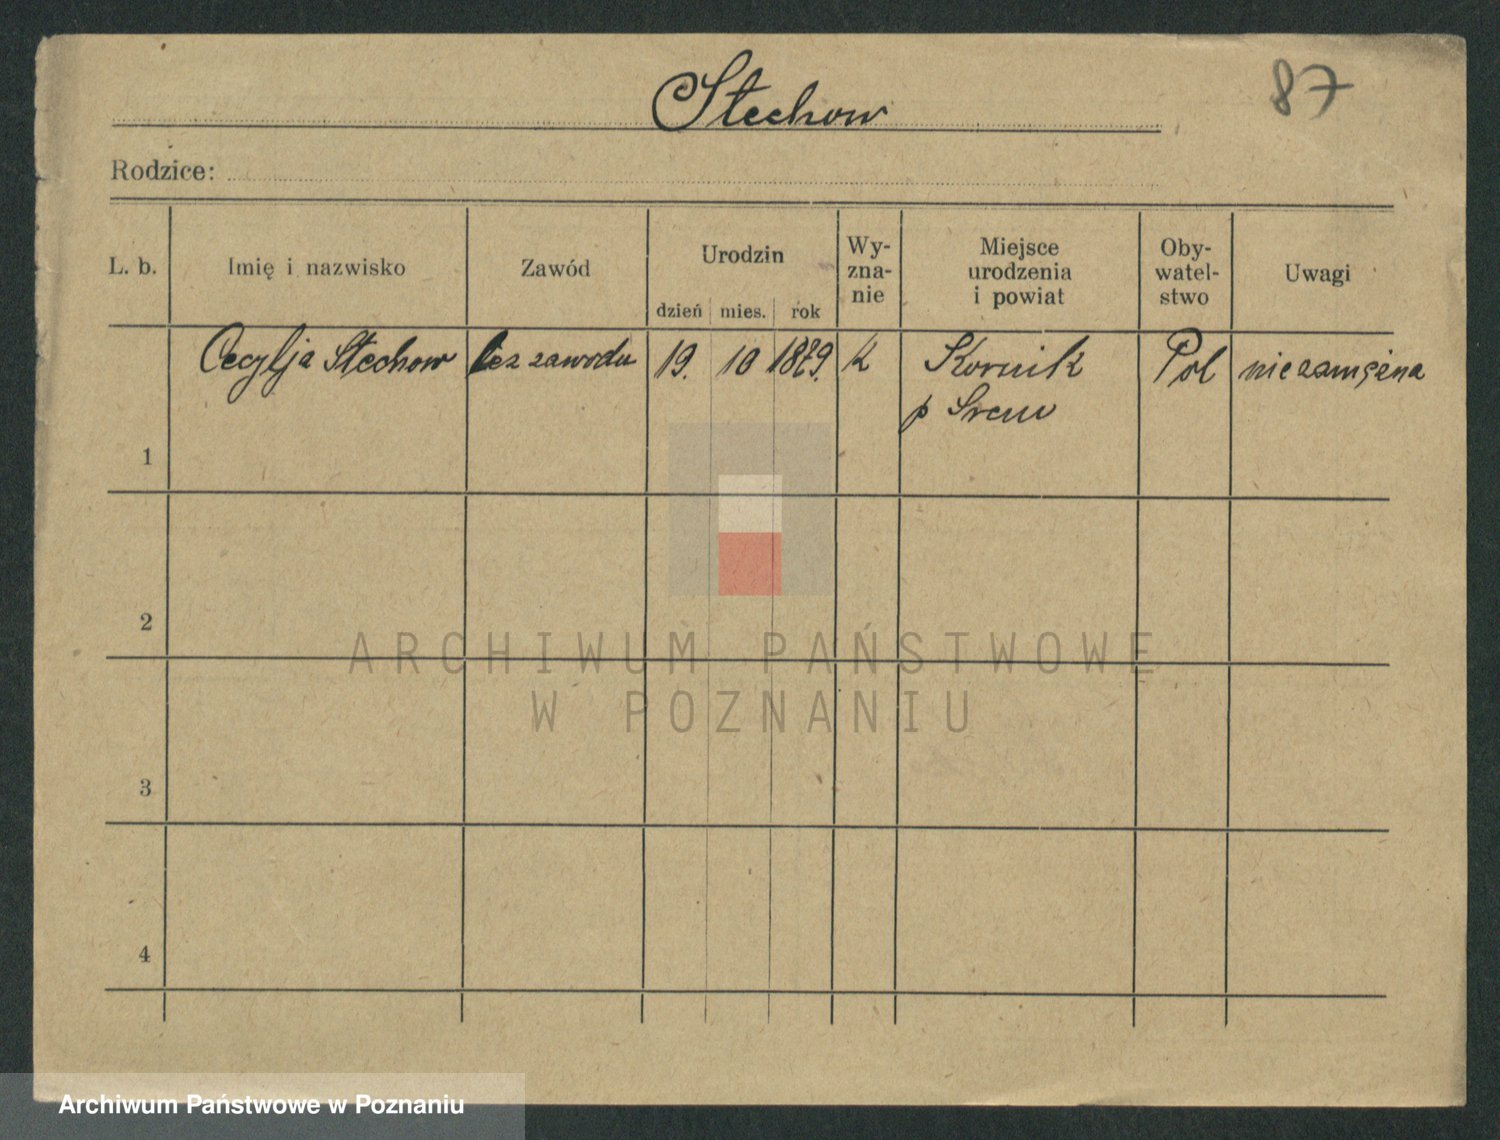 87
Stechow
Rodzice:
L. b.
Imię i nazwisko
Zawód
Urodzin
dzień mies. rok
Wy-
zna-
nie
Miejsce
urodzenia
i powiat
Oby-
watel-
stwo
Uwagi
1 Cecylja Stechow bez zawodu 19. 10 1879. k Kornik Pol niezamężna
p Srem
2
3
4
ARCHIWUM PAŃSTWOWE
W POZNANIU
Archiwum Państwowe w Poznaniu